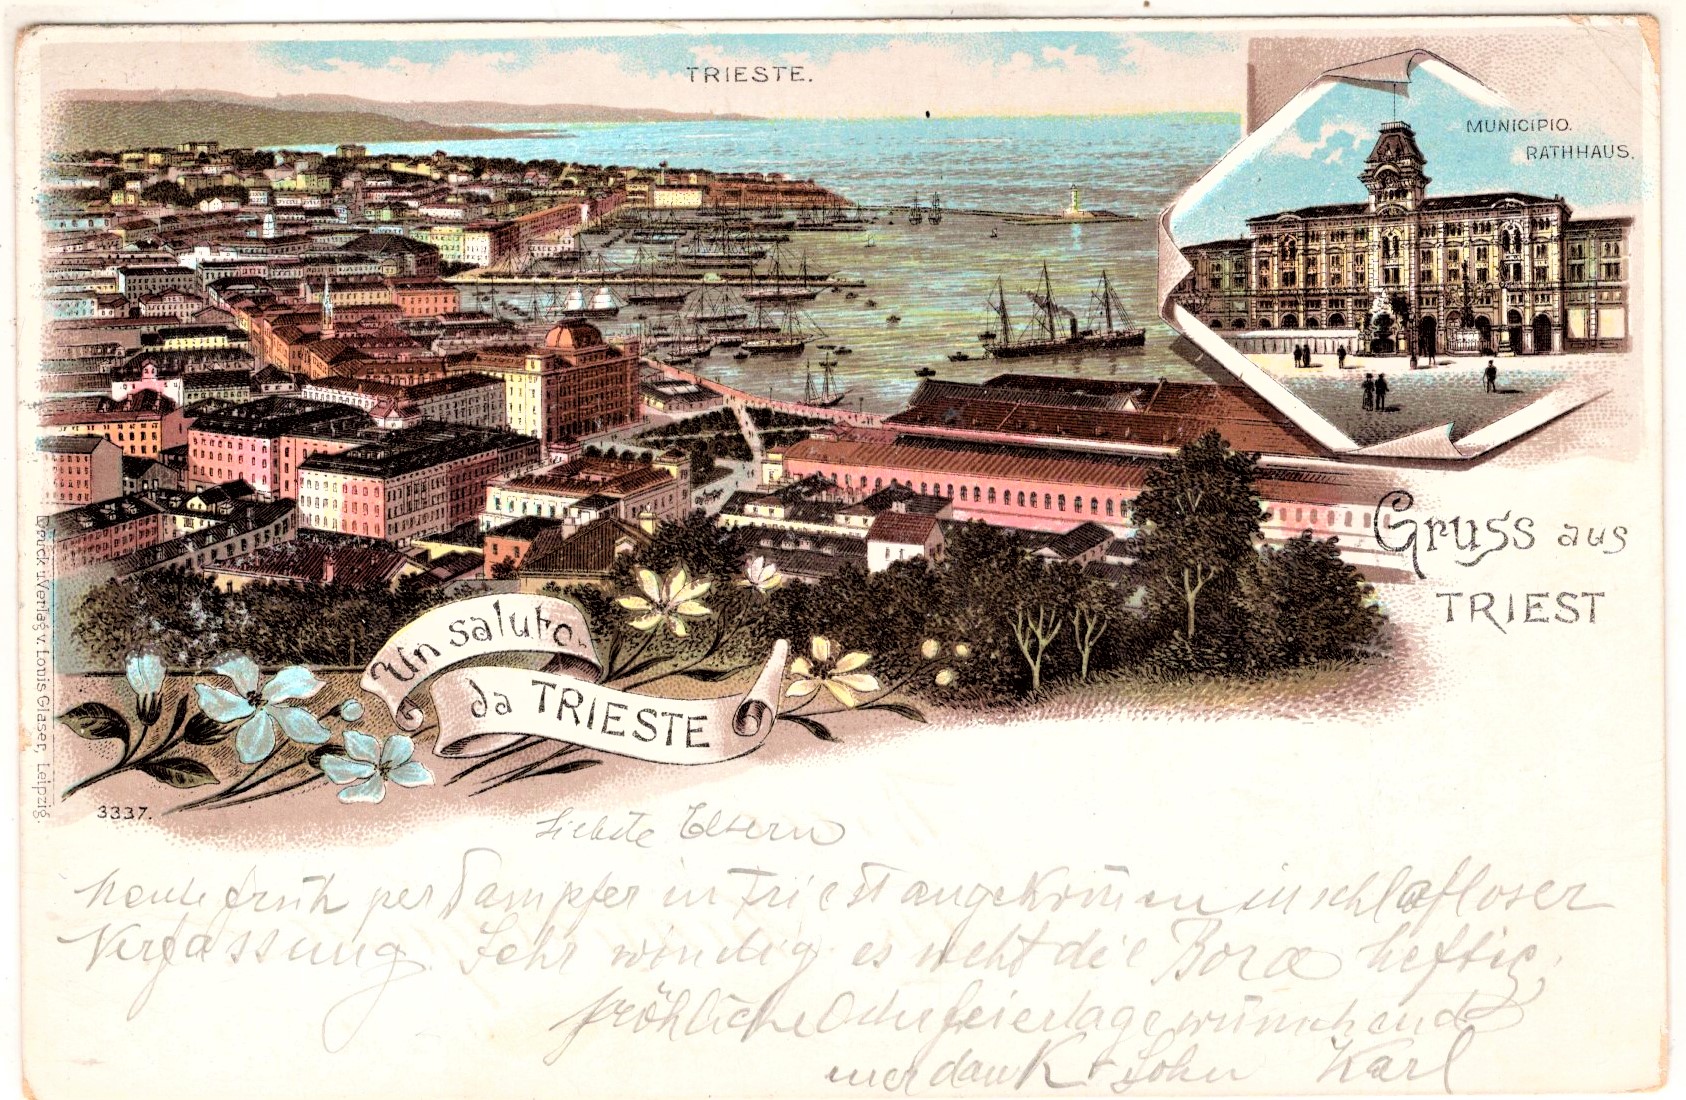 TRIESTE.
MUNICIPIO.
RATHHAUS.
Gruss aus
TRIEST
Un saluto
da TRIESTE
Druck u. Verlag v. Louis Glaser, Leipzig.
3337.
Liebste Eltern
heute früh per Dampfer in Triest angekom̄en in schlafloser
Verfassung. Sehr windig es weht die Bora heftig,
fröhliche Osterfeiertage wünschend
Sohn Karl